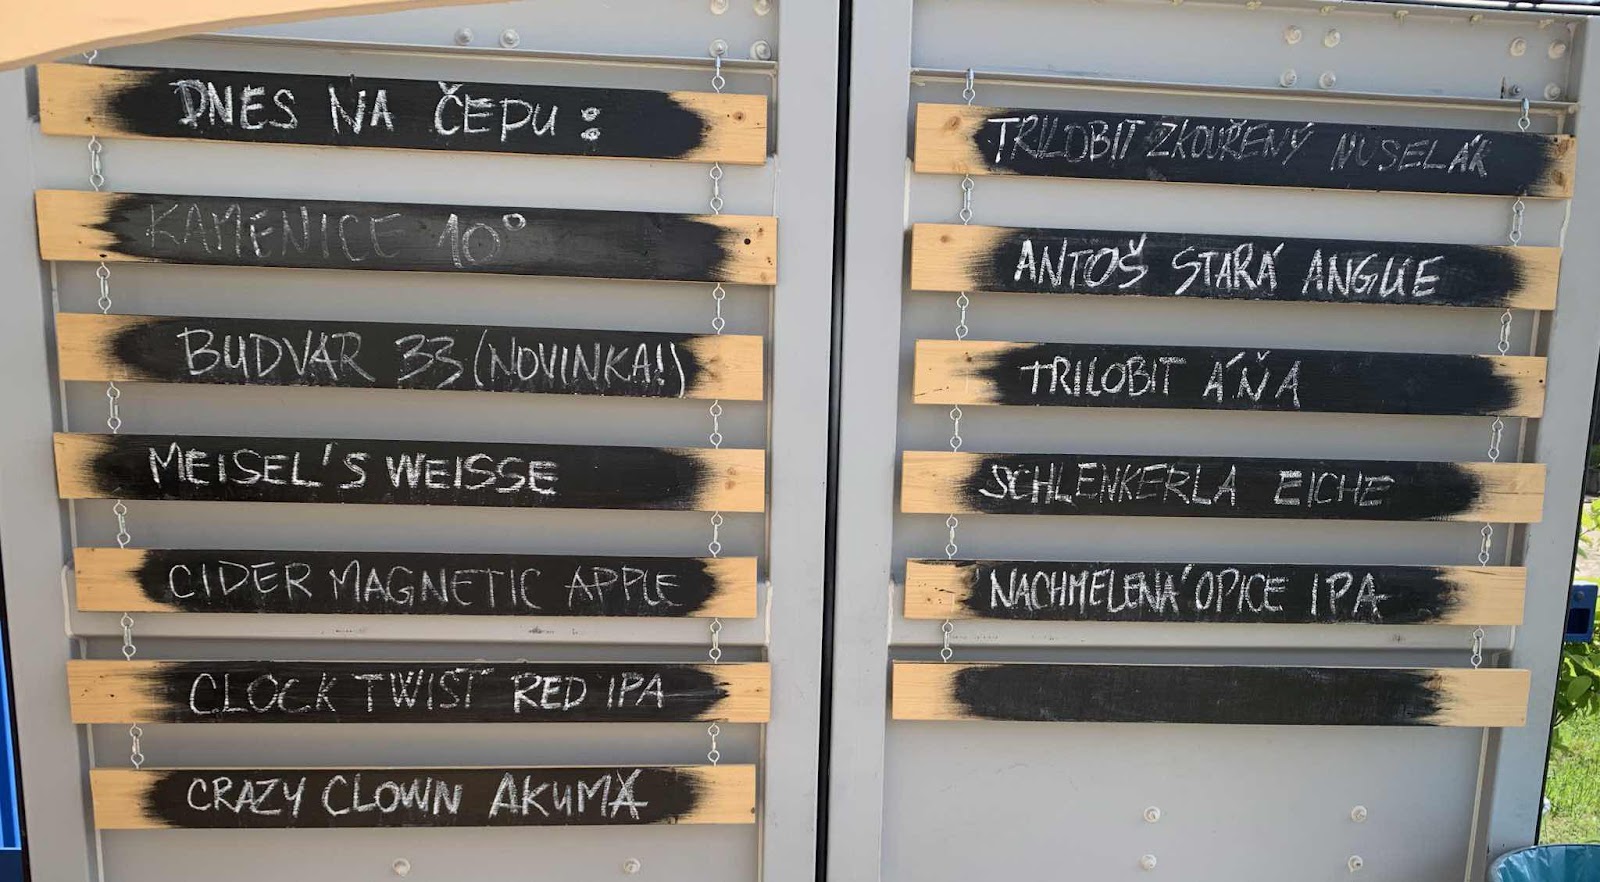 DNES NA ČEPU:
KAMENICE 10°
BUDVAR 33 (NOVINKA!)
MEISEL'S WEISSE
CIDER MAGNETIC APPLE
CLOCK TWIST RED IPA
CRAZY CLOWN AKUMA
TRILOBIT ZKOUŘENÝ NUSELÁK
ANTOŠ STARÁ ANGLIE
TRILOBIT ÁŇA
SCHLENKERLA EICHE
NACHMELENÁ OPICE IPA